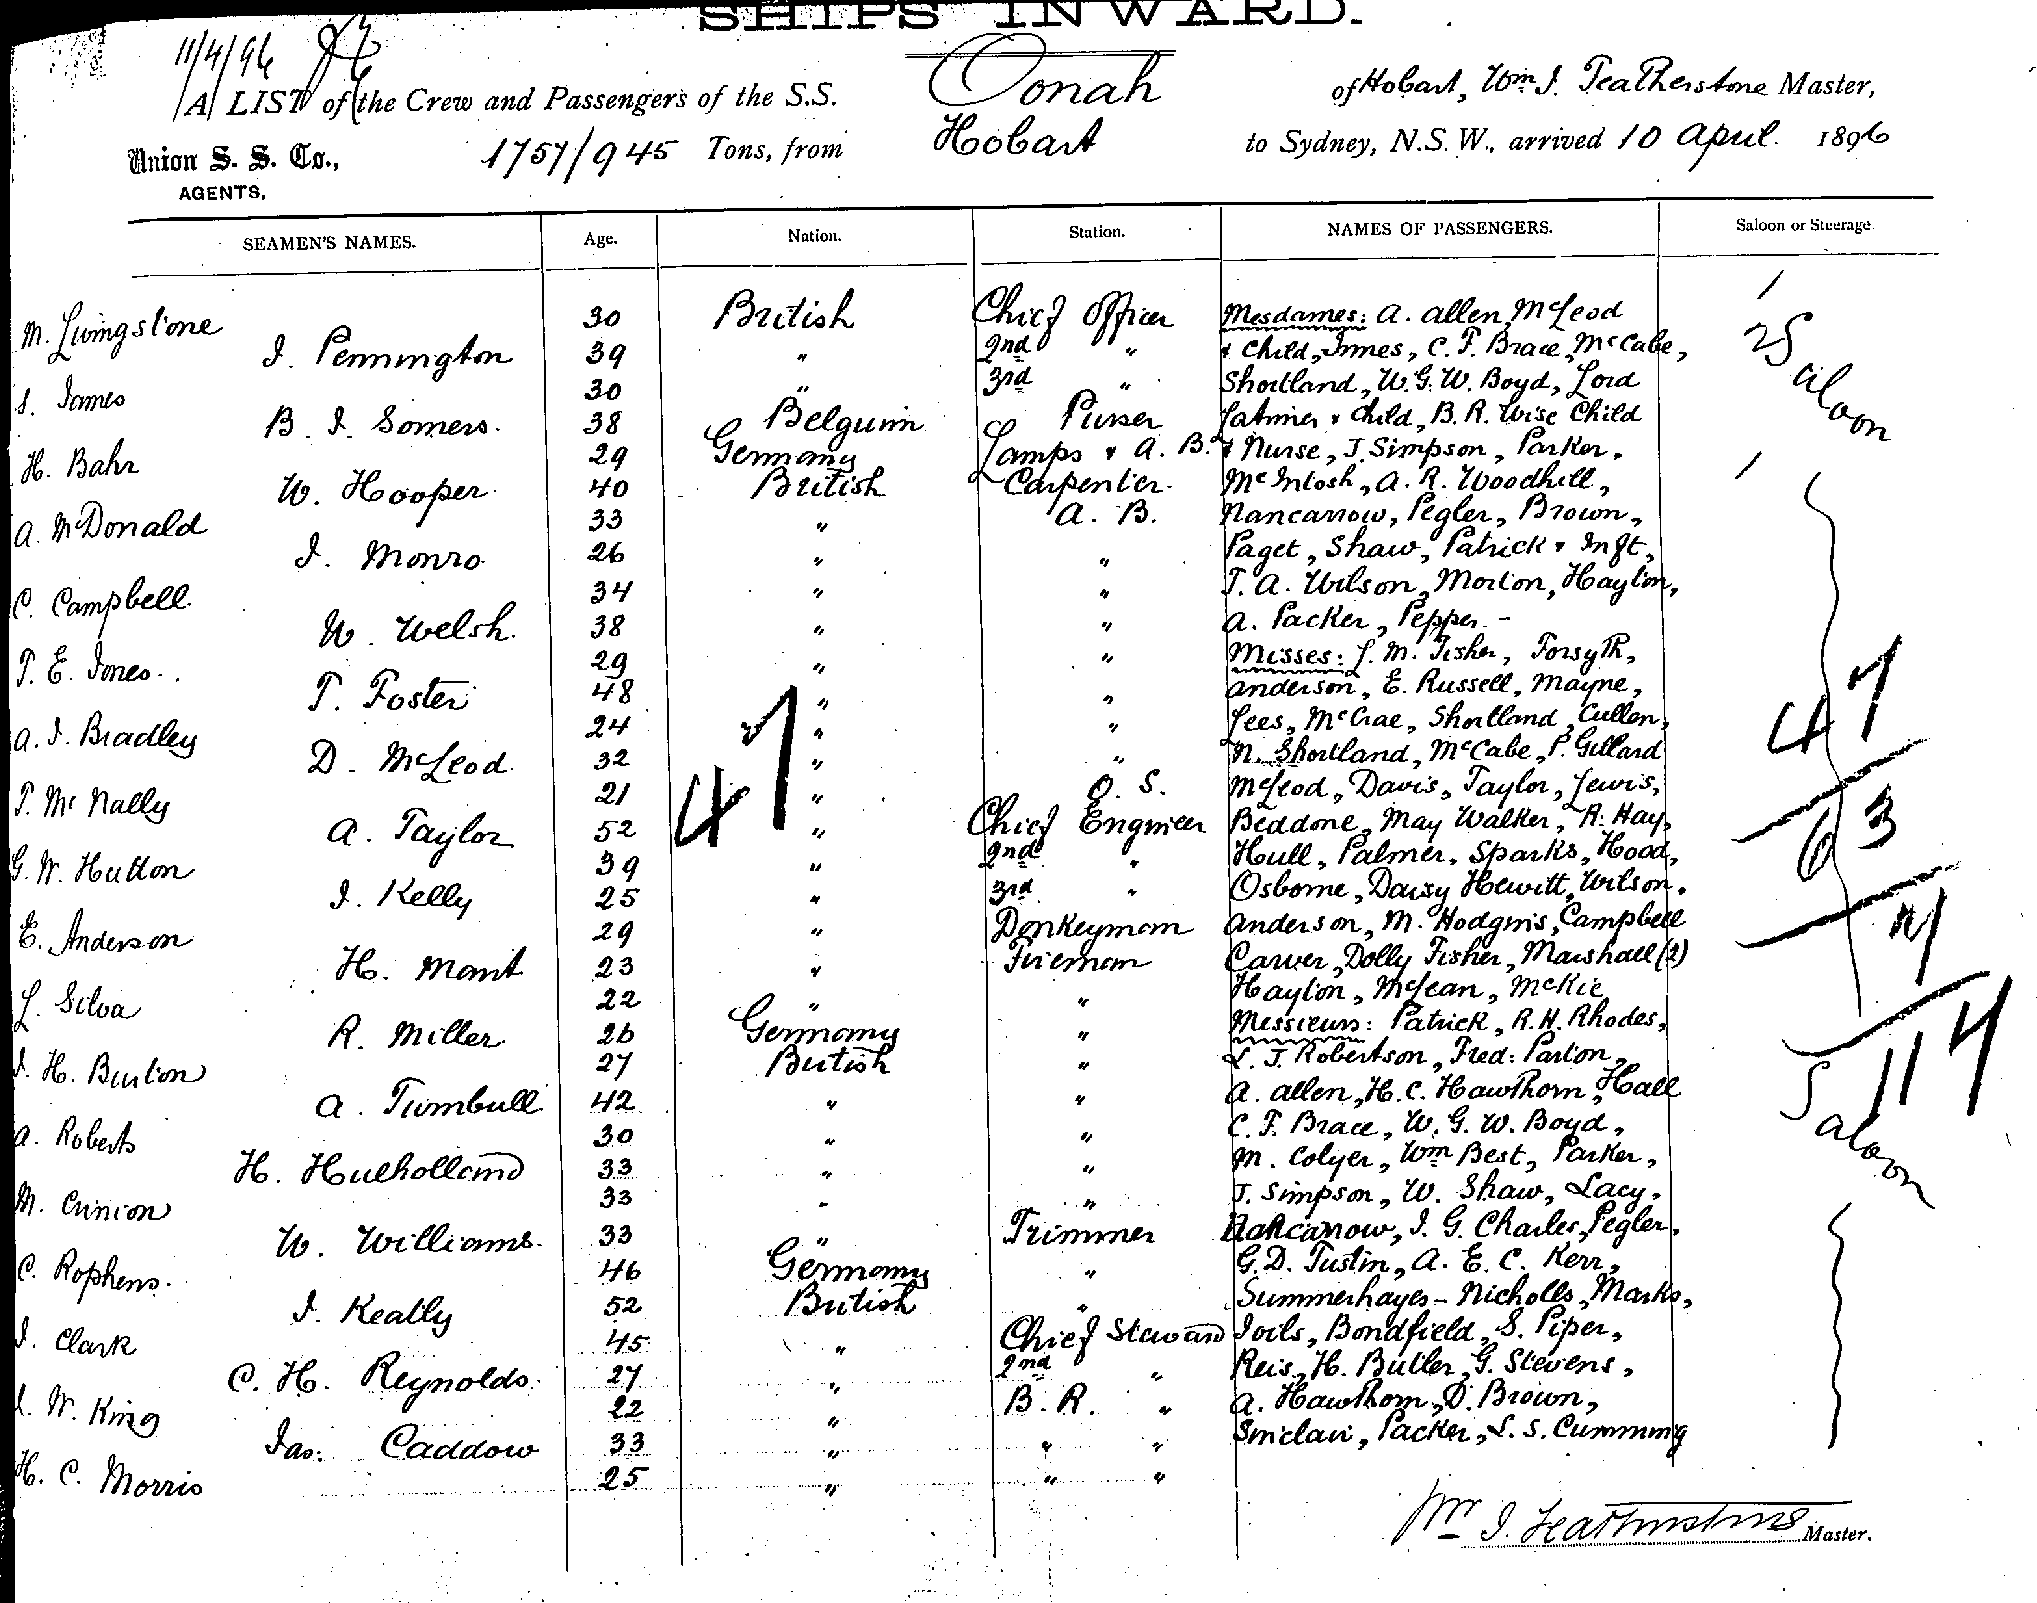 SHIPS INWARD.
11/4/96
A LIST of the Crew and Passengers of the S.S. Oonah of Hobart, Wm J. Featherstone Master,
Union S. S. Co., 1757/945 Tons, from Hobart to Sydney, N.S.W., arrived 10 April 1896
AGENTS.
SEAMEN'S NAMES. Age. Nation. Station. NAMES OF PASSENGERS. Saloon or Steerage
M. Livingstone 30 British Chief Officer Mesdames: A. Allen, McLeod
J. Pennington 39 " 2nd " & Child, Innes, C. F. Brace, McCabe,
S. James 30 " 3rd " Shortland, W. G. W. Boyd, Lord
B. J. Somers. 38 Belguim Purser Latimer & Child, B. R. Wise Child
H. Bahr 29 Germany Lamps & A. B. & Nurse, J. Simpson, Parker,
W. Hooper 40 British Carpenter. McIntosh, A. R. Woodhill,
A. McDonald 33 " A. B. Nancarrow, Pegler, Brown,
J. Monro 26 " " Paget, Shaw, Patrick & Inft,
C. Campbell 34 " " T. A. Wilson, Morton, Hayton,
W. Welsh. 38 " " A. Packer, Pepper -
T. E. Jones. 29 " " Misses: L. M. Fisher, Forsyth,
T. Foster 48 " " Anderson, E. Russell, Mayne,
A. J. Bradley 24 " " Lees, McCrae, Shortland, Cullen,
D. McLeod. 32 " " N. Shortland, McCabe, P. Gillard
T. McNally 21 " O. S. McLeod, Davis, Taylor, Lewis,
A. Taylor 52 " Chief Engineer Beddone, May Walker, A. Hay,
G. W. Hutton 39 " 2nd " Hull, Palmer, Sparks, Hood,
J. Kelly 25 " 3rd " Osborne, Daisy Hewitt, Wilson.
E. Anderson 29 " Donkeyman Anderson, M. Hodgins, Campbell
H. Mant 23 " Fireman Carver, Dolly Fisher, Marshall (2)
L. Silva 22 " " Hayton, McLean, McKie
R. Miller 26 Germany " Messieurs: Patrick, R. H. Rhodes,
J. H. Burton 27 British " L. J. Robertson, Fred: Parton,
A. Turnbull 42 " " A. Allen, H. C. Hawthorn, Hall
A. Roberts 30 " " C. F. Brace, W. G. W. Boyd,
H. Hulholland 33 " " M. Colyer, Wm Best, Parker,
M. Crinion 33 " " J. Simpson, W. Shaw, Lacy,
W. Williams. 33 " Trimmer Nancarrow, J. G. Charles, Pegler,
C. Rophens. 46 Germany " G. D. Tustin, A. E. C. Kerr,
J. Keally 52 British " Summerhayes - Nicholls, Marks,
J. Clark 45 " Chief Steward Joils, Bondfield, S. Piper,
C. H. Reynolds. 27 " 2nd " Reis, H. Butler, G. Stevens,
W. King 22 " B. R. " A. Hawthorn, D. Brown,
Jas: Caddow 33 " " " Sinclair, Packer, L. S. Cumming
H. C. Morris 25 " " "
47
Saloon
47
63
4
114
Saloon
Wm J. Featherstone Master.